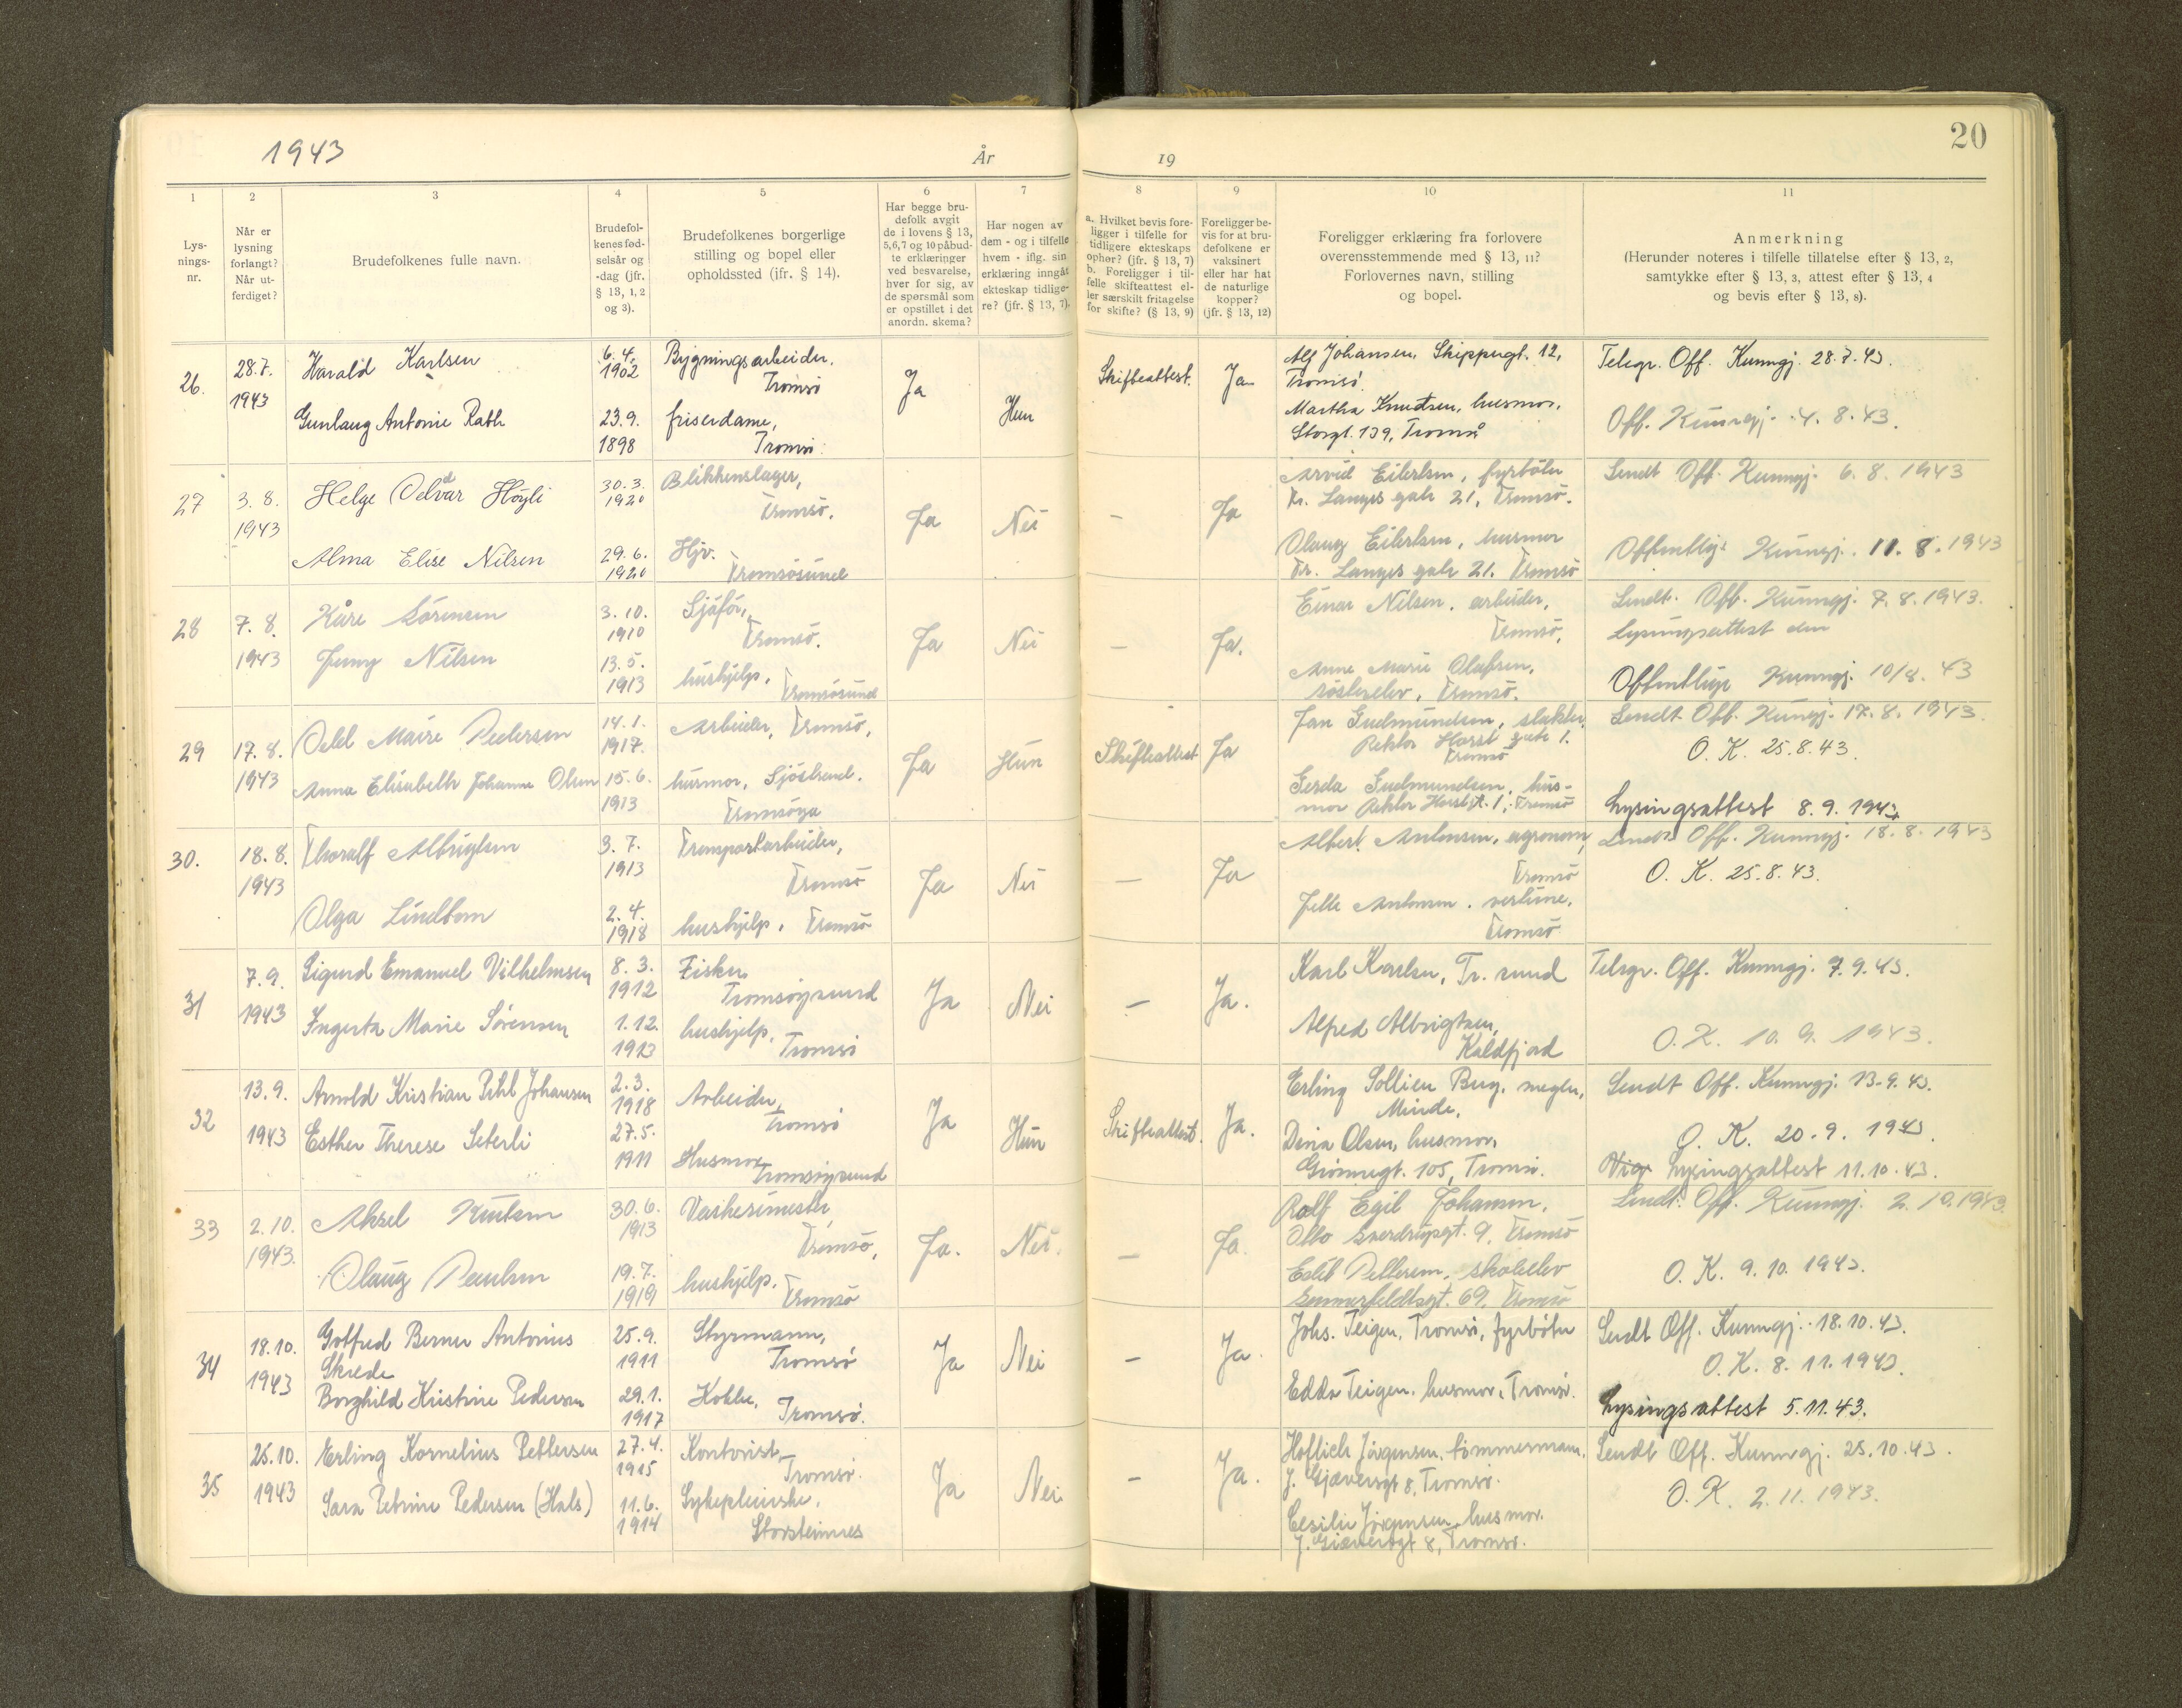 1943
År
19
20
1
2
3
4
5
6
7
8
9
10
11
Lys-
nings-
nr.
Når er
lysning
forlangt?
Når ut-
ferdiget?
Brudefolkenes fulle navn.
Brudefol-
kenes fød-
selsår og
-dag (jfr.
§ 13, 1, 2
og 3).
Brudefolkenes borgerlige
stilling og bopel eller
opholdssted (jfr. § 14).
Har begge bru-
defolk avgit
de i lovens § 13,
5,6,7 og 10 påbud-
te erklæringer
ved besvarelse,
hver for sig, av
de spørsmål som
er opstillet i det
anordn. skema?
Har nogen av
dem - og i tilfelle
hvem - iflg. sin
erklæring inngåt
ekteskap tidlige-
re? (jfr. § 13, 7).
a. Hvilket bevis fore-
ligger i tilfelle for
tidligere ekteskaps
ophør? (jfr. § 13, 7)
b. Foreligger i til-
felle skifteattest el-
ler særskilt fritagelse
for skifte? (§ 13, 9)
Foreligger be-
vis for at bru-
defolkene er
vaksinert
eller har hat
de naturlige
kopper?
(jfr. § 13, 12)
Foreligger erklæring fra forlovere
overensstemmende med § 13, 11?
Forlovernes navn, stilling
og bopel.
Anmerkning
(Herunder noteres i tilfelle tillatelse efter § 13, 2,
samtykke efter § 13, 3, attest efter § 13, 4
og bevis efter § 13, 8).
26.
28.7.
1943
Harald Karlsen
Gunlaug Antonie Rath
6.4.
1902
23.9.
1898
Bygningsarbeider.
Tromsö
friserdame,
Tromsö.
Ja
Hun
Skifteattest.
Ja
Alf Johansen, Skippergt. 12,
Tromsö.
Martha Knudsen, husmor,
Storgt. 139, Tromsö
Telegr. Off. Kunngj. 28.7.43.
Off. Kunngj. 4.8.43.
27
3.8.
1943
Helge Odvar Höyli
Alma Elise Nilsen
30.3.
1920
29.6.
1920
Blikkenslager,
Tromsö.
Hjv.
Tromsösund
Ja
Nei
–
Ja
Arvid Eilertsen, fyrböter
Fr. Langes gate 21, Tromsö.
Olaug Eilertsen, husmor
Fr. Langes gate 21. Tromsö
Sendt Off. Kunngj. 6.8.1943
Offentlig Kunngj. 11.8.1943
28
7.8.
1943
Kåre Sörensen
Jenny Nilsen
3.10.
1910
13.5.
1913
Sjåför,
Tromsö.
hushjelp,
Tromsösund
Ja
Nei
–
Ja.
Einar Nilsen, arbeider,
Tromsö,
Anne Marie Olafsen,
Tromsö.
Sendt. Off. Kunngj. 7.8.1943.
Lysningsattest den
Offentlig Kunngj. 10/8. 43
29
17.8.
1943
Odd Maire Pedersen
Anna Elisabeth Johanne Olsen
14.1.
1917.
15.6.
1913
Arbeider, Tromsö,
husmor, Sjöstrand.
Tromsöya
Ja
Hun
Skifteattest
Ja
Jan Gudmundsen, slakter,
Rektor Horst gate 1.
Tromsö
Gerda Gudmundsen, hus-
mor Rektor Horst gt. 1, Tromsö
Sendt Off. Kunngj. 17.8.1943.
O.K. 25.8.43.
Lysingsattest 8.9.1943
30.
18.8.
1943
Thoralf Albrigtsen
Olga Lindbom
3.7.
1913
2.4.
1918
Transportarbeider,
Tromsö
hushjelp, Tromsö
Ja
Nei
–
Ja
Albert Antonsen, agronom,
Tromsö
Antonsen,
Tromsö
Sendt Off. Kunngj. 18.8.1943
O.K. 25.8.43.
31
7.9.
1943
Sigurd Emanuel Vilhelmsen
Ingerta Marie Sörensen
8.3.
1912
1.12.
1913
Fisker,
Tromsöysund
hushjelp,
Tromsö
Ja
Nei
–
Ja.
Karl Karlsen, Tr. sund
Alfred Albrigtsen,
Kaldfjord
Telegr. Off. Kunngj. 7.9.43.
O.K. 10.9.1943.
32
13.9.
1943
Arnold Kristian Pihl Johansen
Esther Therese Seterli
2.3.
1918
27.5.
1911
Arbeider,
Tromsö
Husmor
Tromsöysund
Ja
Hun
Skifteattest.
Ja.
Erling Sollien Bug. megler,
Minde.
Dina Olsen, husmor,
Grönnegt. 105, Tromsö.
Sendt Off. Kunngj. 13.9.43.
O.K. 20.9.1943.
Lysingsattest 11.10.43.
33
2.10.
1943.
Aksel Knutsen
Olaug Paulsen
30.6.
1913
19.7.
1919
Vaskerimester
Tromsö,
hushjelp,
Tromsö
Ja.
Nei.
–
Ja.
Rolf Egil Johansen,
Otto Sverdrupsgt. 9, Tromsö
Edit Pettersen, skoleelev
Sommerfeldtsgt. 69, Tromsö
Sendt. Off. Kunngj. 2.10.1943.
O.K. 9.10.1943.
34
18.10.
1943
Gotfred Berner Antonius
Skrede
Borghild Kristine Pedersen
25.9.
1911
29.1.
1917
Styrmann,
Tromsö
Kokke,
Tromsö.
Ja
Nei
–
Ja.
Johs. Teigen, Tromsö, fyrböter
Edda Teigen, husmor, Tromsö.
Sendt Off. Kunngj. 18.10.43.
O.K. 8.11.1943.
Lysingsattest 5.11.43.
35
25.10.
1943
Erling Kornelius Pettersen
Sara Petrine Pedersen (Hals)
27.4.
1915
11.6.
1914
Kontorist
Tromsö.
Sykepleierske,
Storsteinnes
Ja
Nei
–
Ja.
Jörgensen, tömmermann,
J. Gjæversgt 8, Tromsö.
Cecilie Jörgensen, husmor.
J. Gjæversgt 8, Tromsö.
Sendt Off. Kunngj. 25.10.43.
O.K. 2.11.1943.